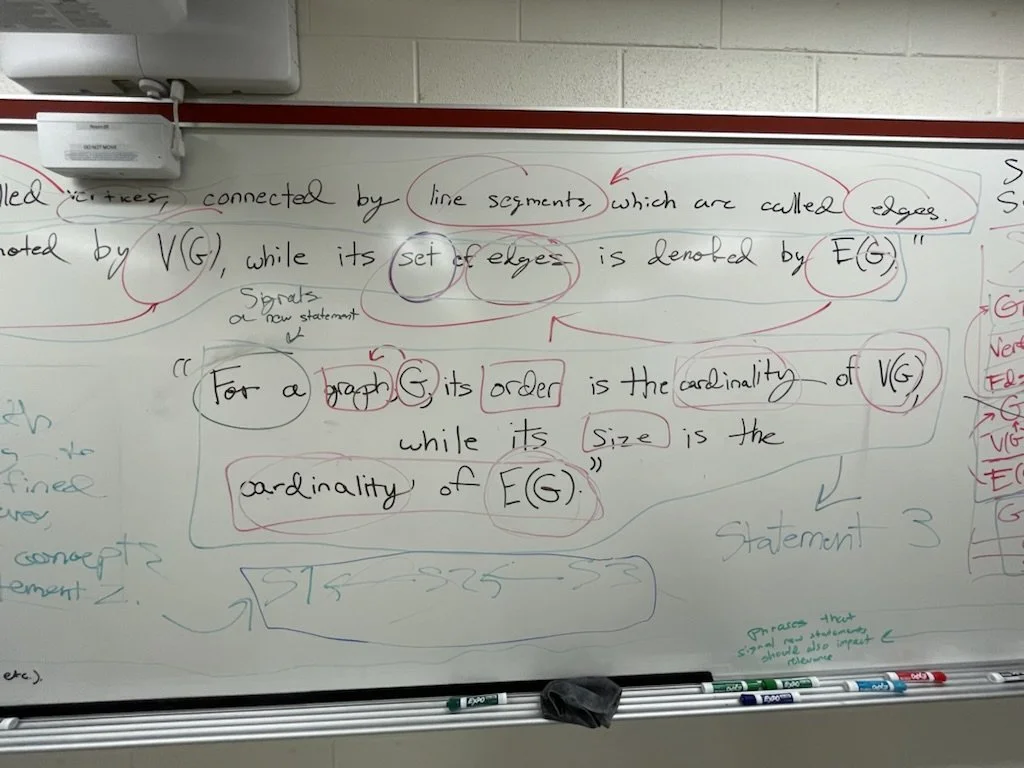 lled vertices, connected by line segments, which are called edges.
noted by V(G), while its set of edges is denoted by E(G)."
Signals
a new statement
"For a graph, G, its order is the cardinality of V(G),
while its size is the
cardinality of E(G)."
Statement 3
S1 S2 S3
fined
concept
tement 2.
phrases that
signal new statements
should also impact
relevance
etc.).
Vert
V(G
E(
G
DO NOT MOVE
EXPO